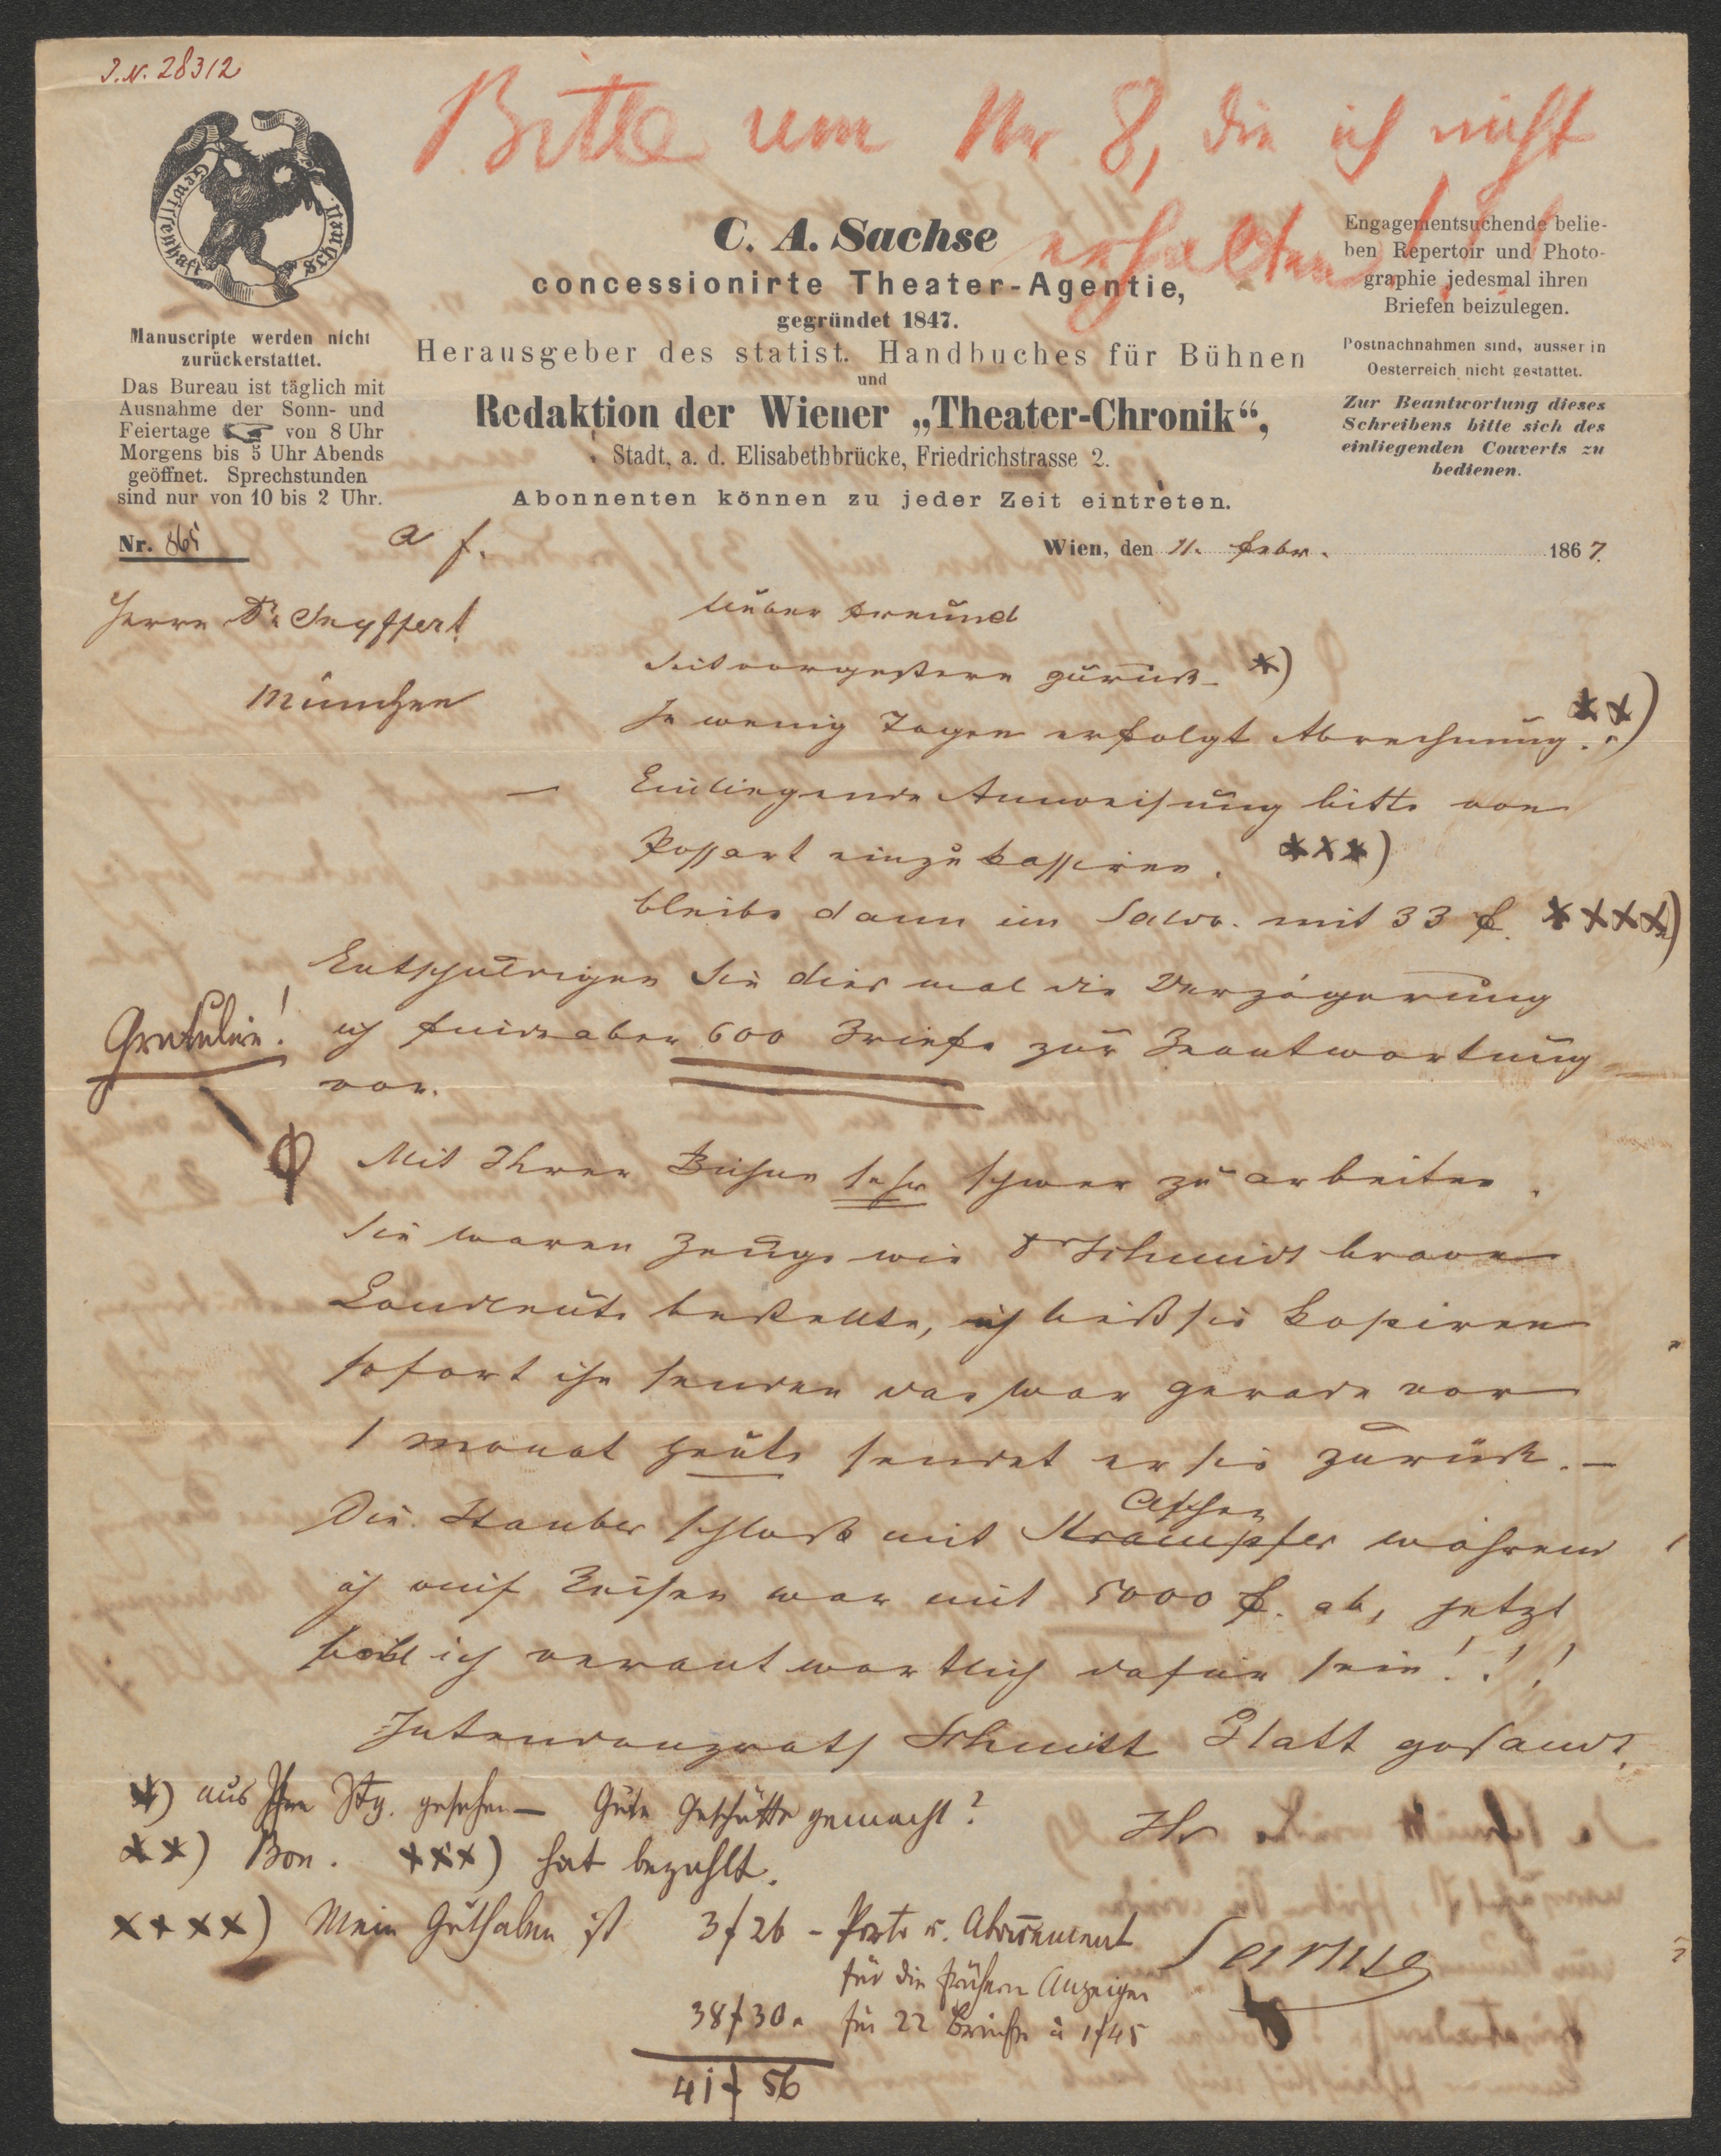 I.N. 28312
Bitte um Nr 8, die ich nicht
erhalten!!!
Gewissenhaft
schnell
C. A. Sachse
concessionirte Theater-Agentie,
gegründet 1847.
Herausgeber des statist. Handbuches für Bühnen
und
Redaktion der Wiener „Theater-Chronik“,
Stadt, a. d. Elisabethbrücke, Friedrichstrasse 2.
Abonnenten können zu jeder Zeit eintreten.
Manuscripte werden nicht
zurückerstattet.
Das Bureau ist täglich mit
Ausnahme der Sonn- und
Feiertage von 8 Uhr
Morgens bis 5 Uhr Abends
geöffnet. Sprechstunden
sind nur von 10 bis 2 Uhr.
Engagementsuchende belie-
ben Repertoir und Photo-
graphie jedesmal ihren
Briefen beizulegen.
Postnachnahmen sind, ausser in
Oesterreich nicht gestattet.
Zur Beantwortung dieses
Schreibens bitte sich des
einliegenden Couverts zu
bedienen.
Nr. 865
a f.
Wien, den 11. Febr. 1867.
Herrn Dr Seyffert
München
Lieber Freund
Seit vorgestern zurück *)
In wenig Tagen erfolgt Abrechnung. **)
— Einliegende Anweisung bitte von
Possart einzukassiren. ***)
bleibe dann im Saldo mit 33 f. ****)
Entschuldigen Sie dies mal die Verzögerung
ich finde aber 600 Briefe zur Beantwortung
vor.
Gratulire!
Mit Ihrer Bühne sehr schwer zu arbeiten.
Sie waren Zeuge wie Dr Schmidt brave
Landleute bestellte, ich ließ sie kopiren
sofort ihm senden das war gerade vor
1 Monat heute sendet er sie zurück. —
Die Stauber schloß mit Ascher während
ich auf Reisen war mit 5000 f. ab, jetzt
soll ich verantwortlich dafür sein!!!
Intendanzrath Schmitt Blatt gesandt.
Ihr
Sachse
*) aus Ihrer Ztg. gesehen — Gute Geschäfte gemacht?
**) Bon. ***) hat bezahlt.
****) Mein Guthaben ist 3 f 26 - Porto u. Abonnement
für die frühern Anzeigen
38 f 30 . für 22 Briefe à 1 f 45
41 f 56